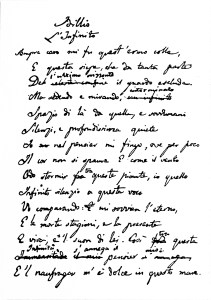 Idillio
L'Infinito
Sempre caro mi fu quest'ermo colle,
E questa siepe, che da tanta parte
De l'ultimo orizzonte il guardo esclude.
Ma sedendo e mirando, interminato
Spazio di là da quella, e sovrumani
Silenzi, e profondissima quiete
Io nel pensier mi fingo, ove per poco
Il cor non si spaura. E come il vento
Odo stormir tra queste piante, io quello
Infinito silenzio a questa voce
Vo comparando: e mi sovvien l'eterno,
E le morte stagioni, e la presente
E viva, e 'l suon di lei. Così tra questa
Infinità s'annega il mio pensiero
E 'l naufragar m'è dolce in questo mare.